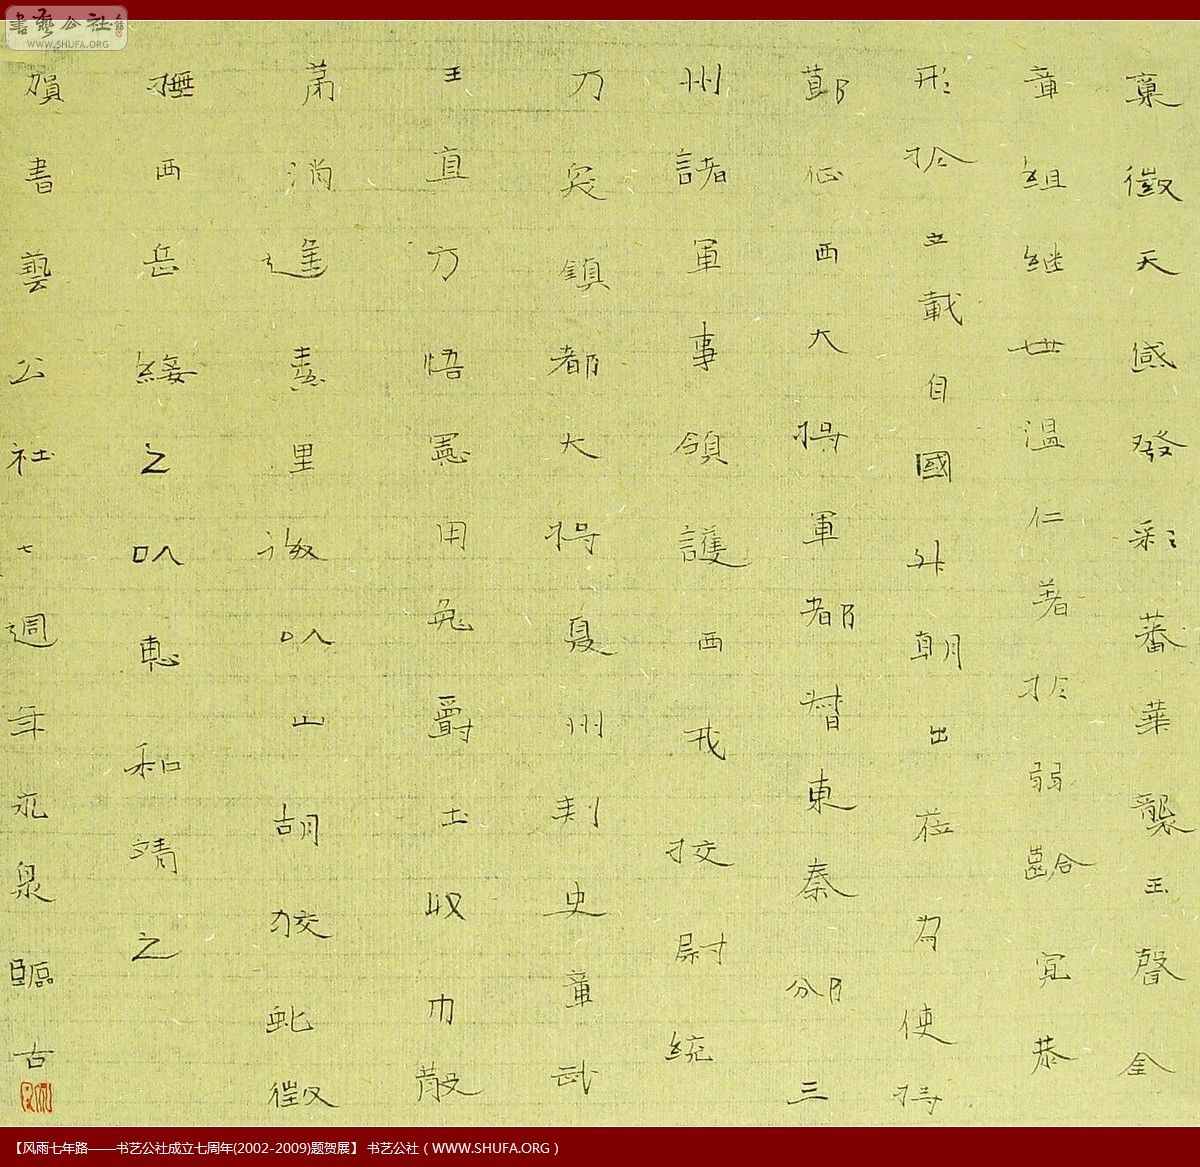 稟徽天感發彩蕃華襲玉聲金
章組繼世溫仁著於弱齡寬恭
形於立載自國升朝出莅為使持
鄯征西大將軍都督東秦豳三
州諸軍事領護西戎校尉統
万突鎮都大將夏州刾史童武
王直方悟憲用免爵土收巾散
葉消進素里澂以山胡狡虵徵
撫西岳綏之以惠和靖之
賀書藝公社七週年永泉臨古
書藝公社
WWW.SHUFA.ORG
【风雨七年路——书艺公社成立七周年(2002-2009)题贺展】 书艺公社（WWW.SHUFA.ORG）